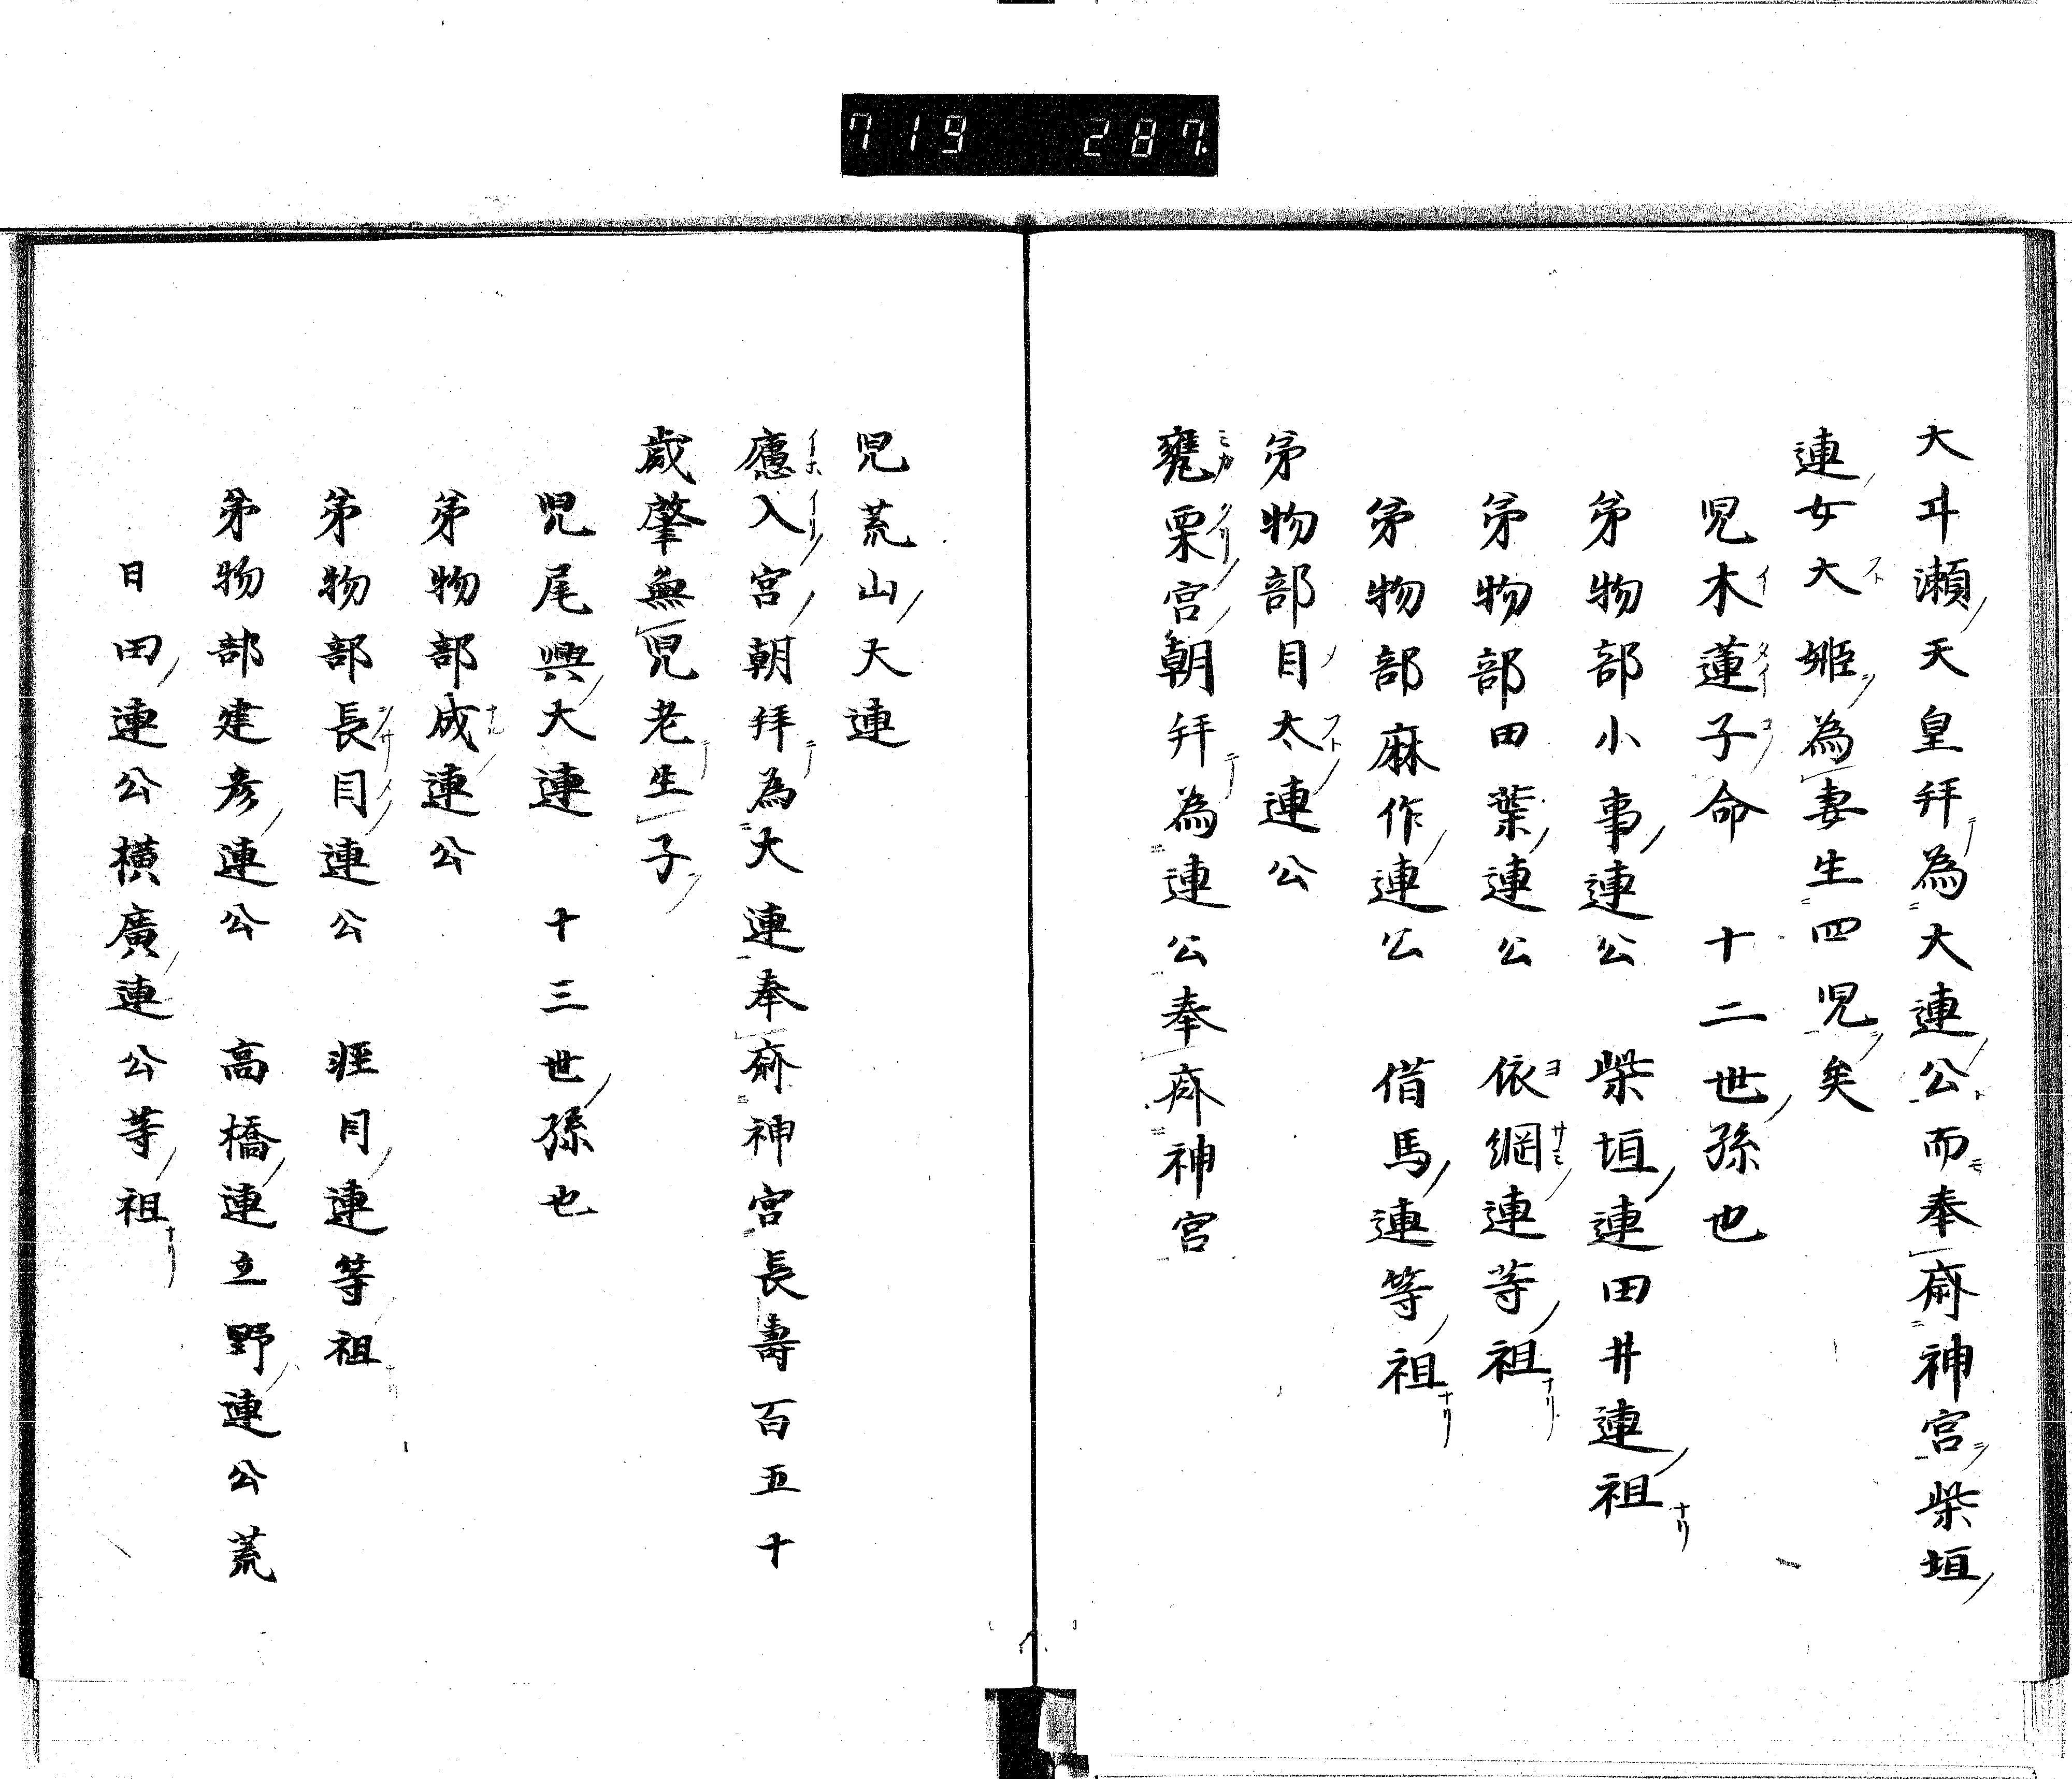 719 287
大丼瀬天皇拜為大連公而奉齋神宮柴垣
連女大姬為妻生四児矣
児木蓮子命 十二世孫也
弟物部小事連公 柴垣連田井連祖
弟物部田葉連公 依網連等祖
弟物部麻作連公 借馬連等祖
弟物部目太連公
甕栗宮朝拜為連公奉齋神宮
児荒山大連
廬入宮朝拜為大連奉齋神宮長壽百五十
歲肇無児老生子
児尾輿大連 十三世孫也
弟物部成連公
弟物部長目連公 軽目連等祖
弟物部建彦連公 高橋連立野連公荒
日田連公横廣連公等祖